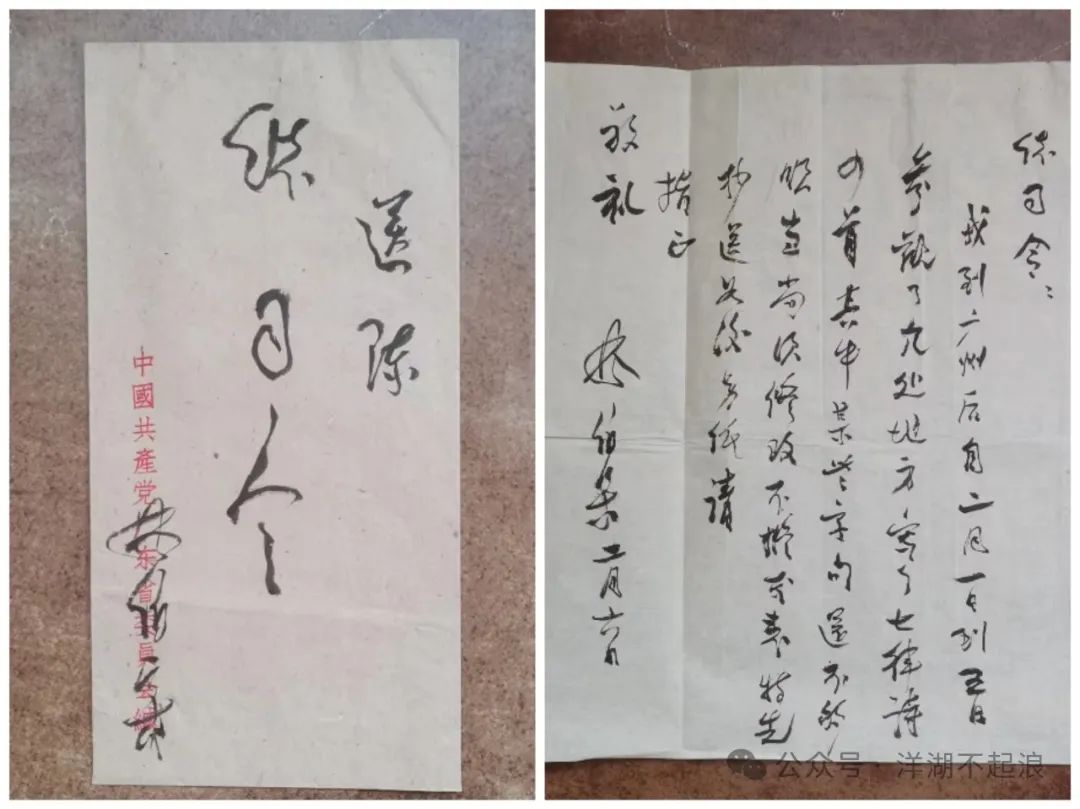 送陈
司令
中國共產党东省委員会緘
林伯渠
司令：
我到广州后自二月一日到五日
参观了九处地方写了七律诗
四首其中某些字句还不够
顺当尚须修改不拟发表特先
抄送另纸请
指正
致礼
林伯渠 二月十六日
公众号·洋湖不起浪